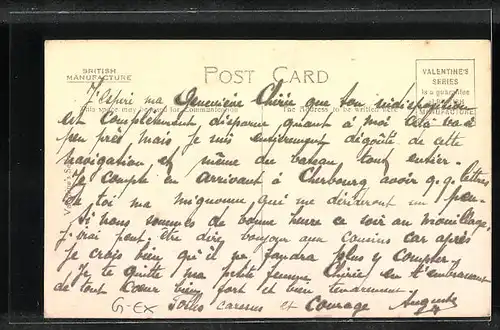 BRITISH MANUFACTURE
POST CARD
VALENTINE'S SERIES is a guarantee of BRITISH MANUFACTURE
This space may be used for Communication
The Address to be written here
J'espère ma Geneviève Chérie que ton indisposition
est complètement disparue quant à moi cela va à
peu près mais je suis entièrement dégoûté de cette
navigation et même du bateau tout entier.
Je compte en arrivant à Cherbourg avoir q.q. lettres
de toi ma mignonne qui me dérideront un peu.
Si nous sommes de bonne heure ce soir au mouillage,
j'irai peut-être dire bonjour aux cousins car après
je crois bien qu'il ne faudra plus y compter.
Je te quitte ma petite femme Chérie en t'embrassant
de tout Coeur bien fort et bien tendrement
G-EX caresses et Courage Auguste